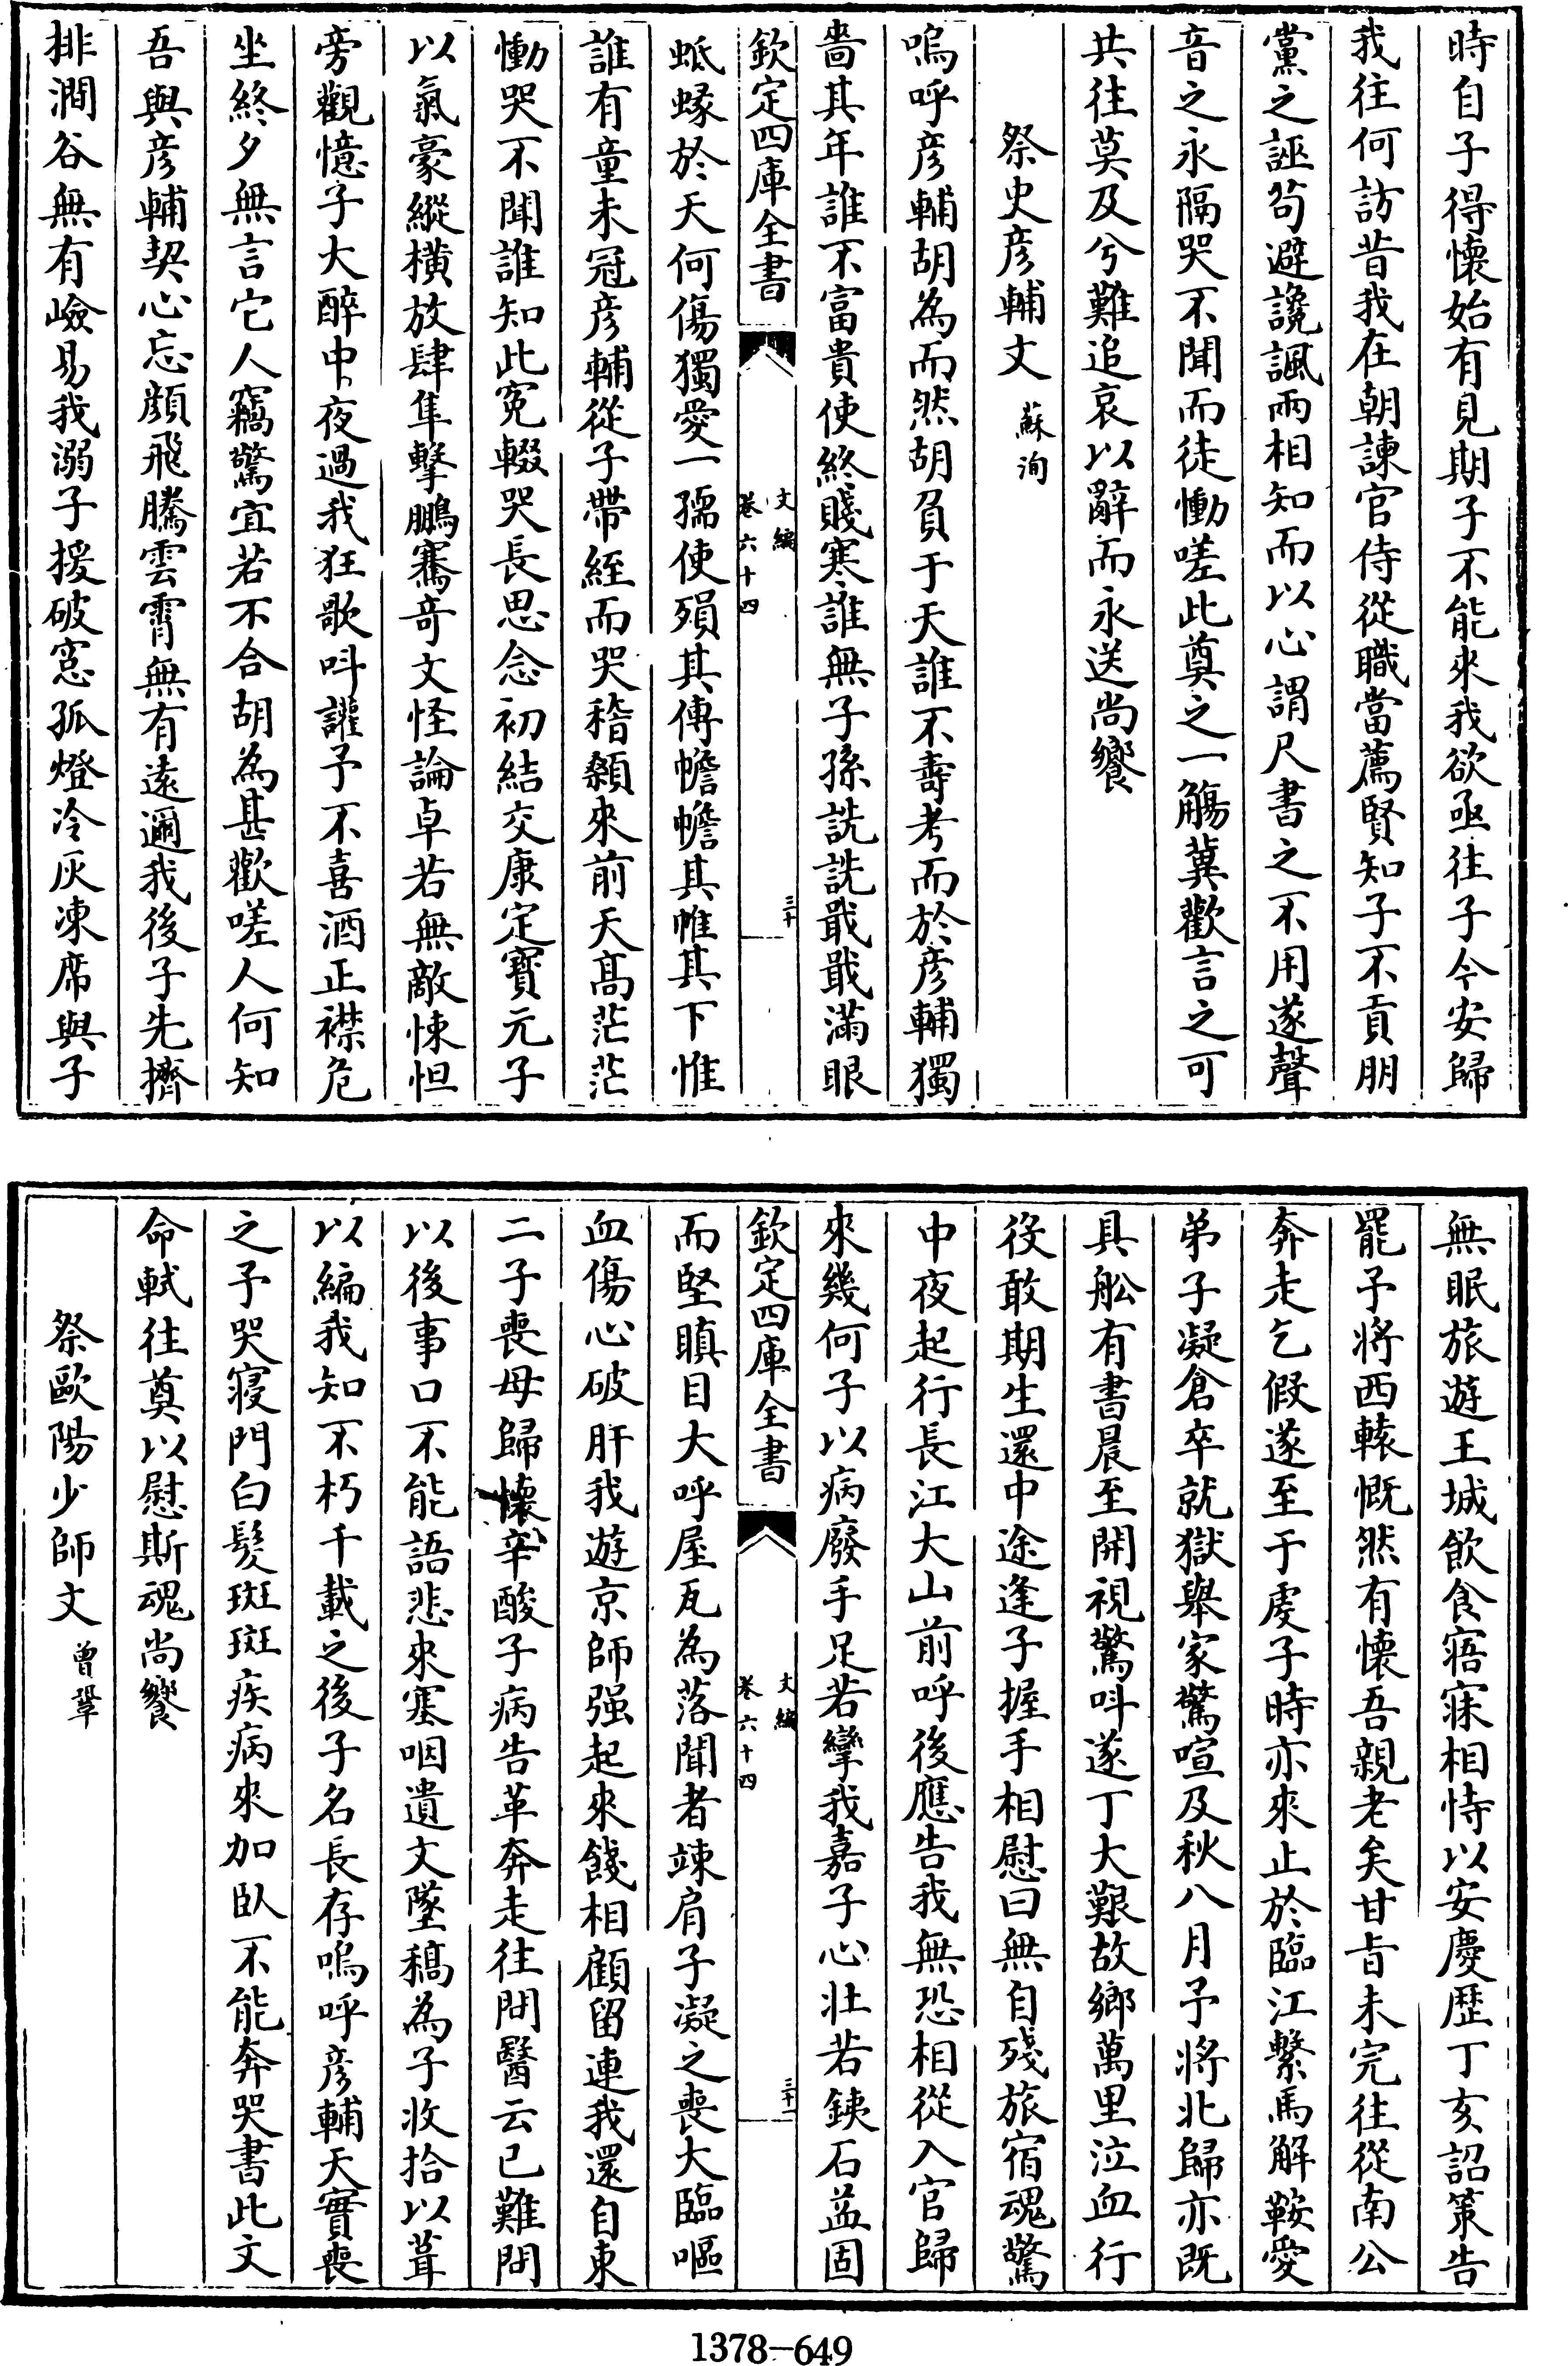 時自子得懷始有見期子不能來我欲亟往子今安歸
我往何訪昔我在朝諫官侍從職當薦賢知子不貢朋
黨之誣茍避讒諷兩相知而以心謂尺書之不用遂聲
音之永隔哭不聞而徒慟嗟此奠之一觴冀歡言之可
共往莫及兮難追哀以辭而永送尚饗
祭史彦輔文 蘇洵
嗚呼彦輔胡為而然胡負于天誰不壽考而於彦輔獨
嗇其年誰不富貴使終賤寒誰無子孫詵詵戢戢滿眼
欽定四庫全書
文編
卷六十四
三十
蚳蝝於天何傷獨愛一孺使殞其傳幨幨其帷其下惟
誰有童未冠彦輔從子帶絰而哭稽顙來前天髙茫茫
慟哭不聞誰知此寃輟哭長思念初結交康定寳元子
以氣豪縱横放肆隼擊鵬騫奇文怪論卓若無敵悚怛
旁觀憶子大醉中夜過我狂歌呌讙予不喜酒正襟危
坐終夕無言它人竊驚宜若不合胡為甚歡嗟人何知
吾與彦輔契心忘顔飛騰雲霄無有遠邇我後子先擠
排澗谷無有嶮易我溺子援破窓孤燈冷灰凍席與子
無眠旅遊王城飲食寤寐相恃以安慶歴丁亥詔策告
罷予將西轅慨然有懷吾親老矣甘旨未完往從南公
奔走乞假遂至于䖍子時亦來止於臨江繫馬解鞍愛
弟子凝倉卒就獄舉家驚喧及秋八月予將北歸亦既
具舩有書晨至開視驚呌遂丁大艱故鄉萬里泣血行
役敢期生還中途逢子握手相慰曰無自殘旅宿魂驚
中夜起行長江大山前呼後應告我無恐相從入官歸
來幾何子以病廢手足若攣我嘉子心壯若鐵石益固
欽定四庫全書
文編
卷六十四
三十一
而堅瞋目大呼屋瓦為落聞者竦肩子凝之喪大臨嘔
血傷心破肝我遊京師强起來餞相顧留連我還自東
二子喪母歸懷辛酸子病告革奔走往問醫云已難問
以後事口不能語悲來塞咽遺文墜稿為子收拾以葺
以編我知不朽千載之後子名長存嗚呼彦輔天實喪
之予哭寢門白髮斑斑疾病來加卧不能奔哭書此文
命軾往奠以慰斯魂尚饗
祭歐陽少師文 曾鞏
1378-649